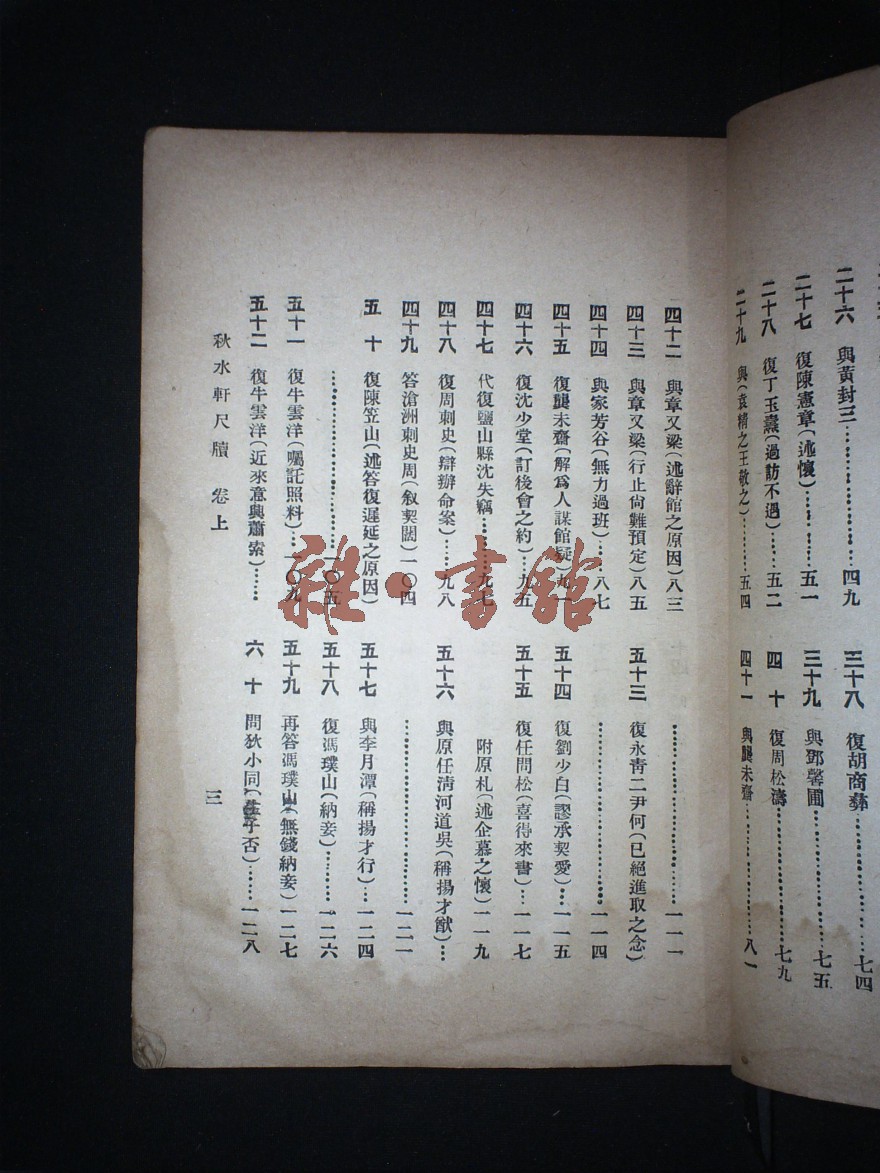 二十六　與黃封三……四九
二十七　復陳憲章（述懷）……五一
二十八　復丁玉藁（過訪不遇）……五二
二十九　與（袁精之王敬之）……五四
三十八　復胡商彝……七四
三十九　與鄧馨圃……七五
四十　復周松濤……七九
四十一　與龔未齋……八一
四十二　與章又梁（述辭館之原因）八三
四十三　與章又梁（行止尙難預定）八五
四十四　與家芳谷（無力過班）…八七
四十五　復龔未齋（解爲人謀館疑）九一
四十六　復沈少堂（訂後會之約）…九五
四十七　代復鹽山縣沈失竊……九七
四十八　復周刺史（辯辦命案）…九八
四十九　答滄洲刺史周（敘契闊）一〇四
五十　復陳笠山（述答復遲延之原因）
……一〇五
五十一　復牛雲洋（囑託照料）…一〇九
五十二　復牛雲洋（近來意興蕭索）……
……一一一
五十三　復永靑二尹何（已絕進取之念）
……一一四
五十四　復劉少白（謬承契愛）…一一五
五十五　復任問松（喜得來書）…一一七
附原札（述企慕之懷）一一九
五十六　與原任淸河道吳（稱揚才猷）…
……一二一
五十七　與李月潭（稱揚才行）…一二四
五十八　復馮璞山（納妾）……一二六
五十九　再答馮璞山（無錢納妾）一二七
六十　問狄小同（子否）……一二八
秋水軒尺牘　卷上
三
雜·書館